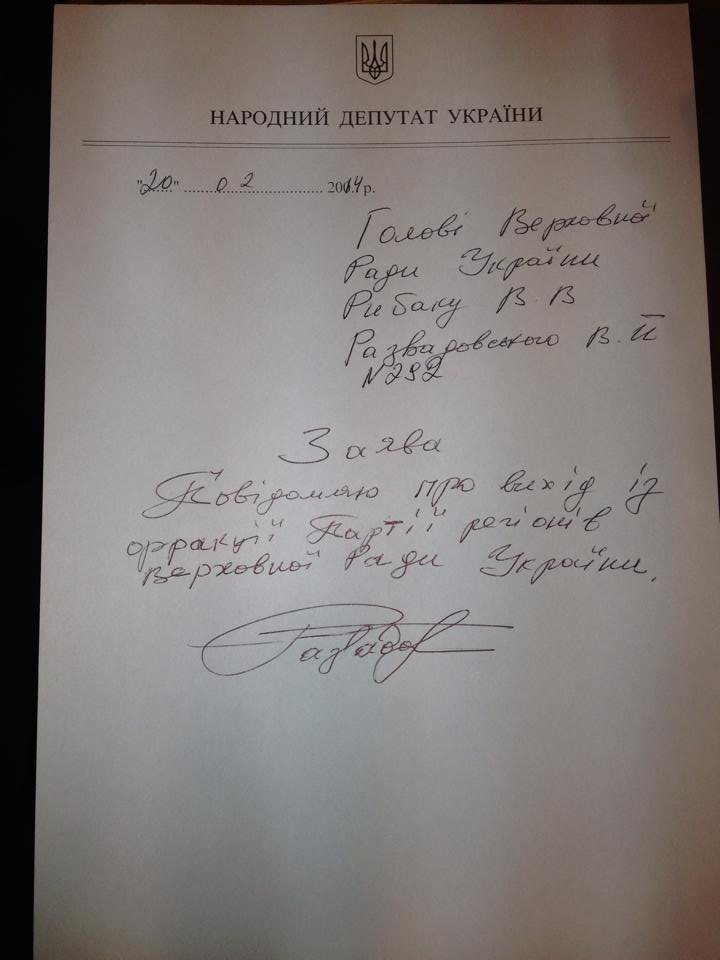 НАРОДНИЙ ДЕПУТАТ УКРАЇНИ
"20" 02 2014р.
Голові Верховної
Ради України
Рибаку В. В
Развадовського В. Й
N292
Заява
Повідомляю про вихід із
фракції Партії регіонів
Верховної Ради України.
Развадов